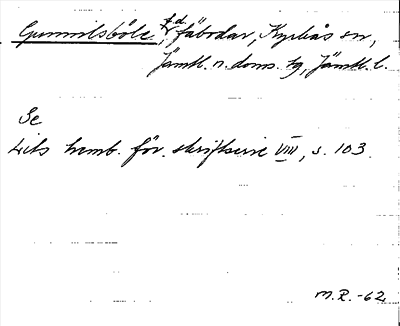 Gunnilsböle, f.d. fäbodar, Kyrkås sn,
Jämtl. n. doms. tg, Jämtl. l.
Se
Lits hemb. för. skriftserie VIII, s. 103.
M.R. -62